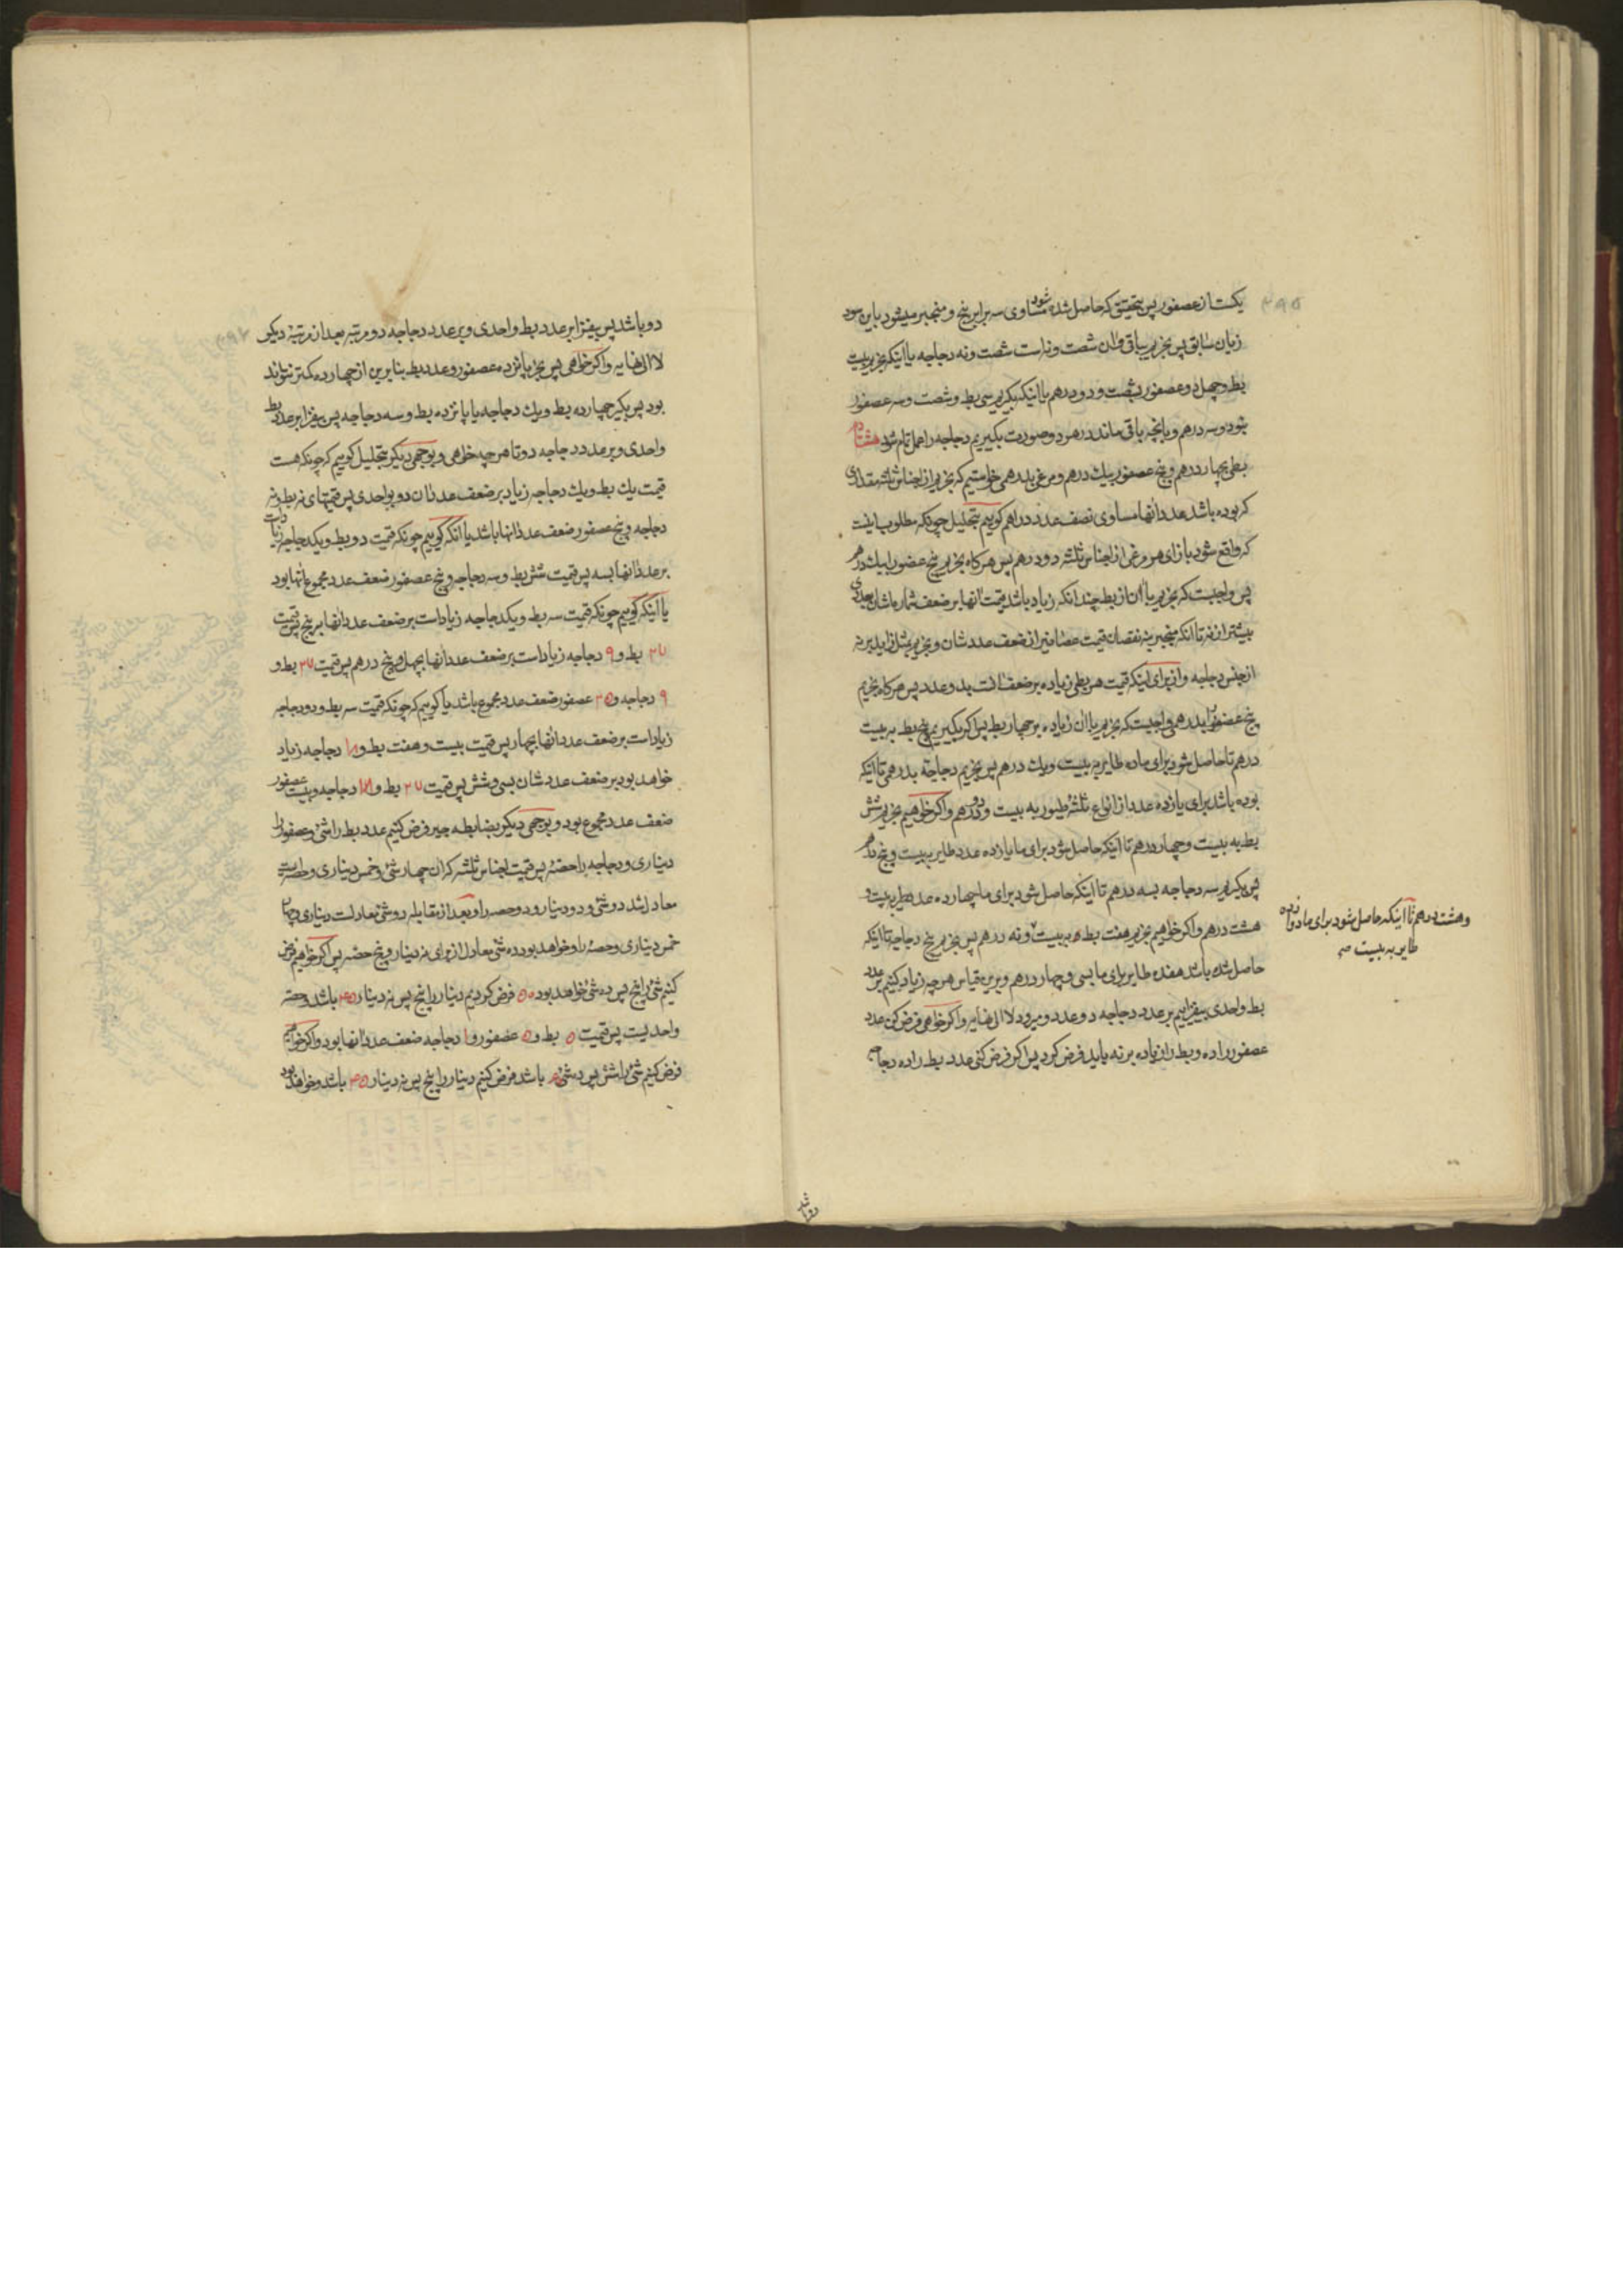 ۳۹۵
یکست از عصفور پس بتحقیق که حاصل شده شود مساوی سه برابر پنج و منجبر میشود باین سود
زیان سابق پس بخریم بباقی وان شصت و نه است شصت و نه دجاجه یا اینکه بخریم بیست
بط و چهل و عصفور بشصت و دو درهم یا اینکه بگیریم سی بط و شصت و سه عصفور
بنود و سه درهم و بانچه باقی ماند در هر دو صورت بگیریم دجاجه را عمل تمام شود هشتادم
بطی بچهار درهم و پنج عصفور بیک درهم و مرغی بدرهمی خواستیم که بخریم از اجناس ثلثه مقداری
که بوده باشد عدد انها مساوی نصف عدد دراهم گوییم بتحلیل چونکه مطلوب ما اینست
که واقع شود بازای هر مرغی از اجناس ثلثه دو درهم پس هرگاه بخریم پنج عصفور را بیک درهم
پس واجبست که بخریم با ان از بط چندانکه زیاد باشد قیمت انها بر ضعف شماره شان بعددی
بیشتر از نه تا انکه منجبر نقصان قیمت عصافیر از ضعف عددشان و بخریم مثل زاید بر نه
از جنس دجاجه و از برای اینکه قیمت هر بطی زیاده بر ضعف است بدو عدد پس هرگاه بخریم
پنج عصفور را بدرهمی واجبست که بخریم با ان زیاده بر چهار بط پس اگر بگیریم پنج بط به بیست
درهم تا حاصل شود برای ما ده طایر به بیست و یک درهم پس بخریم دجاجهٔ بدرهمی تا اینکه
بوده باشد برای یازده عدد از انواع ثلثه طیور به بیست و دو درهم و اگر خواهیم بخریم شش
بط به بیست و چهار درهم تا اینکه حاصل شود برای ما یازده عدد طایر به بیست و پنج درهم
پس بگیریم سه دجاجه بسه درهم تا اینکه حاصل شود برای ما چهارده عدد طیر به بیست و
هشت درهم و اگر خواهیم بخریم هفت بط به بیست و نه درهم پس بخریم پنج دجاجه تا اینکه
حاصل شده باشد هفده طایر برای ما بسی و چهار درهم و برین قیاس هرچه زیاد کنیم بر عدد
بط واحدی بیفزاییم بر عدد دجاجه دو عدد و میرود لا الی نهایه و اگر خواهی فرض کن عدد
عصفور را ده و بط را زیاده بر نه باید فرض کرد پس اگر فرض کنی عدد بط را ده دجاجه
و هشت درهم تا اینکه حاصل شود برای ما دوازده
طایر به بیست صح
دو باشد پس بیفزا بر عدد بط واحدی و بر عدد دجاجه دو مرتبه بعد از مرتبهٔ دیگر
لا الی نهایه و اگر خواهی پس بخر پانزده عصفور و عدد بط بنابرین از چهارده کمتر نتواند
بود پس بگیر چهارده بط و یک دجاجه یا پانزده بط و سه دجاجه پس بیفزا بر عدد بط
واحدی و بر عدد دجاجه دو تا هرچه خواهی و بوجهی دیگر بتحلیل گوییم که چونکه هست
قیمت یک بط و یک دجاجه زیاد بر ضعف عددشان دو بواحدی پس قیمتهای نه بط و نه
دجاجه و پنج عصفور ضعف عدد انها باشد یا انکه گوییم چونکه قیمت دو بط و یک دجاجه زیاد است
بر عدد انها بسه پس قیمت شش بط و سه دجاجه و پنج عصفور ضعف عدد مجموع انها بود
یا اینکه گوییم چونکه قیمت سه بط و یکدجاجه زیاد است بر ضعف عدد انها بر پنج پس قیمت
۲۷ بط و ۹ دجاجه زیاد است بر ضعف عدد انها بچهل و پنج درهم پس قیمت ۲۷ بط و
۹ دجاجه و ۲۵ عصفور ضعف عدد مجموع باشد یا گوییم که چونکه قیمت سه بط و دو دجاجه
زیاد است بر ضعف عدد انها بچهار پس قیمت بیست و هفت بط و ۱۸ دجاجه زیاد
خواهد بود بر ضعف عددشان بسی و شش پس قیمت ۲۷ بط و ۱۸ دجاجه و بیست عصفور
ضعف عدد مجموع بود و بوجهی دیگر بضابطه جبر فرض کنیم عدد بط را شئ و عصفور را
دیناری و دجاجه را حصهٔ پس قیمت اجناس ثلثه که ان چهار شئ و خمس دیناری و حصه ایست
معادل شد دو شئ و دو دینار و دو حصه را و بعد از مقابله دو شئ معادلست دیناری و چهار
خمس دیناری و حصهٔ را و خواهد بود ده شئ معادل از برای نه دینار و پنج حصه پس اگر خواهیم فرض
کنیم شئ را پنج پس ده شئ خواهد بود ۵۰ فرض کردیم دینار را پنج پس نه دینار ۴۵ باشد و حصه
واحدیست پس قیمت ۵ بط و ۵ عصفور و ۱ دجاجه ضعف عدد انها بود و اگر خواهیم
فرض کنیم شئ را شش پس ده شئ ۶۰ باشد فرض کنیم دینار را پنج پس نه دینار ۴۵ باشد و خواهد بود